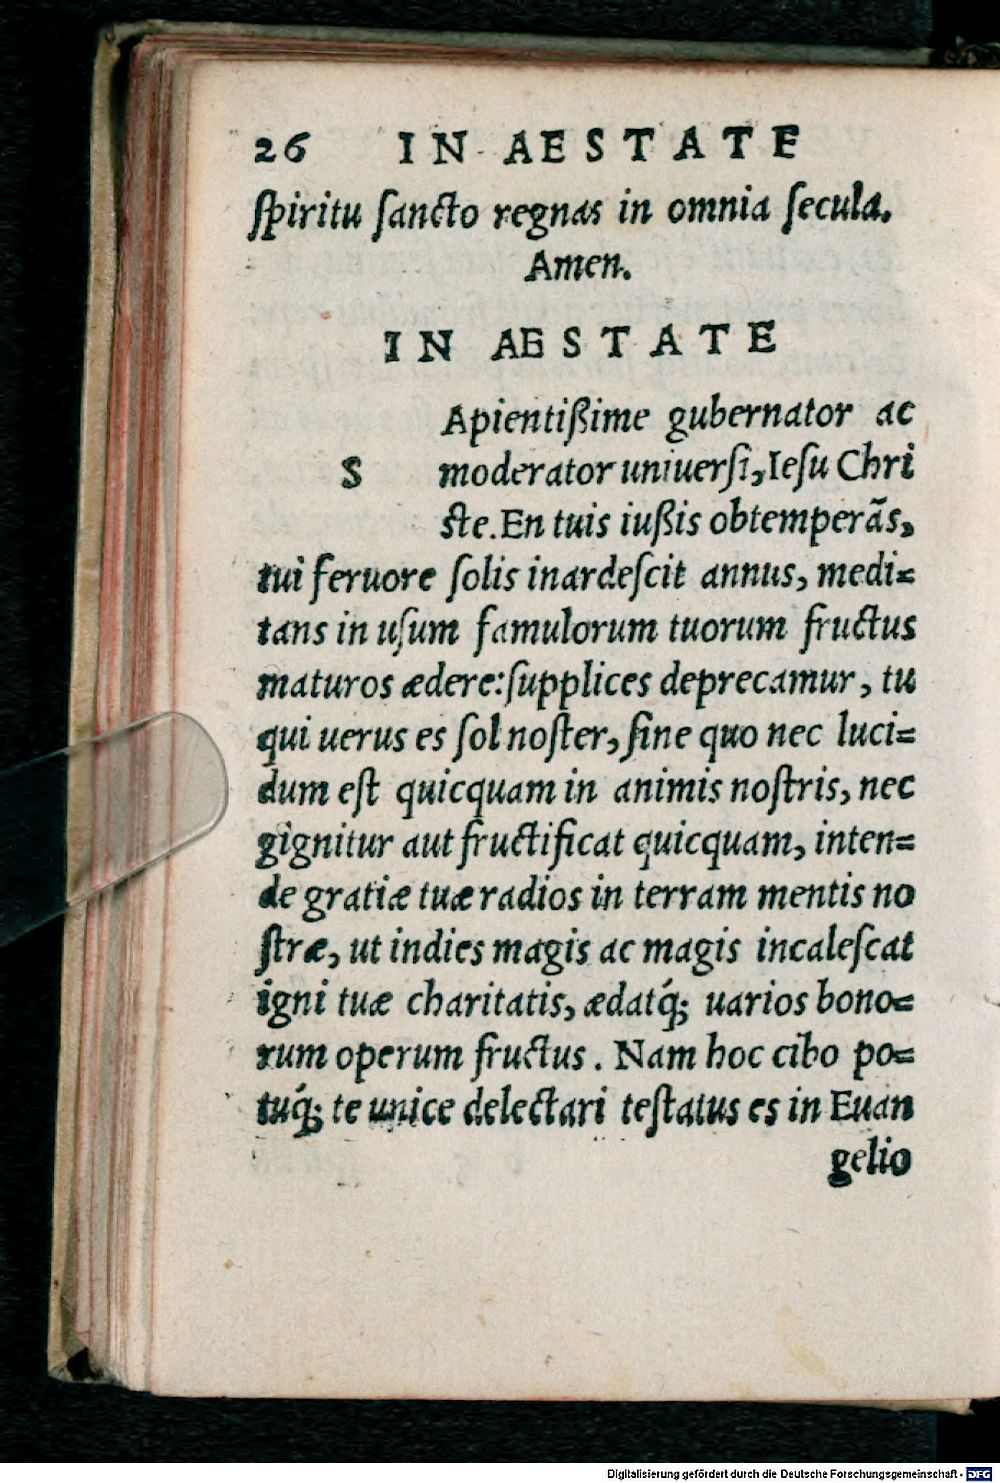 26 IN AESTATE
ſpiritu ſancto regnas in omnia ſecula.
Amen.
IN AESTATE
Apientißime gubernator ac
S moderator uniuerſi, Ieſu Chri
ſte. En tuis iußis obtemperãs,
tui feruore ſolis inardeſcit annus, medi=
tans in uſum famulorum tuorum fructus
maturos ædere: ſupplices deprecamur, tu
qui uerus es ſol noſter, ſine quo nec luci=
dum eſt quicquam in animis noſtris, nec
gignitur aut fructificat quicquam, inten=
de gratiæ tuæ radios in terram mentis no
ſtræ, ut indies magis ac magis incaleſcat
igni tuæ charitatis, ædatq́; uarios bono=
rum operum fructus. Nam hoc cibo po=
tuq́; te unice delectari teſtatus es in Euan
gelio
Digitalisierung gefördert durch die Deutsche Forschungsgemeinschaft - DFG